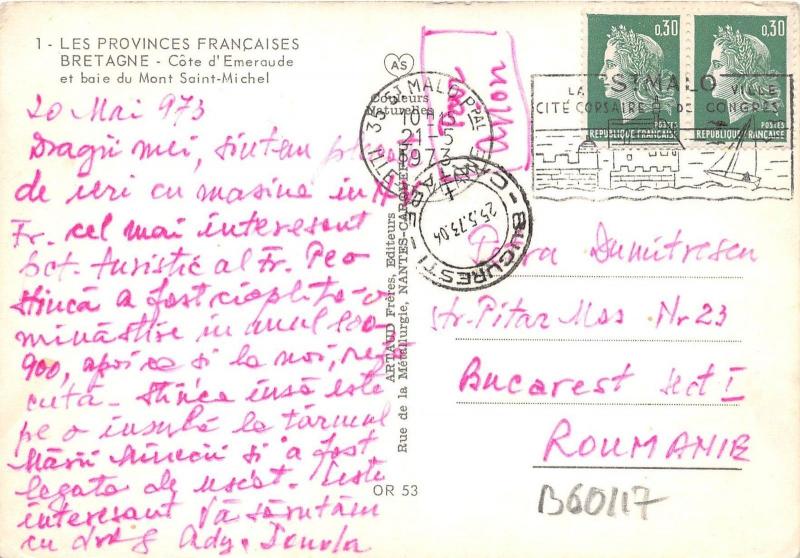 1 - LES PROVINCES FRANÇAISES
BRETAGNE - Côte d'Emeraude
et baie du Mont Saint-Michel
AS
Couleurs
Naturelles
20 Mai 973
Dragii mei, sintem
de ieri cu masina in
Fr. cel mai interesant
pct. turistic al Fr. Pe o
stincă a fost cioplită o
minăstire in anul 800-
900, apoi ca si la noi,
cută. Stinca insă este
pe o insulă la tărmul
Mării Minecii si a fost
legata de uscat. Este
interesant Vă sărutăm
cu drag Ady,
ARTAUD Frères, Editeurs
Rue de la Métallurgie, NANTES-CARQUEFOU
OR 53
35 ST MALO PPAL
10H15
21-5
1973
ILLE
BUCURESTI
25.5.73.04
0,30
POSTES
REPUBLIQUE FRANÇAISE
0,30
POSTES
REPUBLIQUE FRANÇAISE
ST MALO
LA VILLE
CITÉ CORSAIRE DE CONGRÈS
avion
Dumitrescu
Str. Pitar Mos Nr 23
Bucarest sect I
ROUMANIE
B60/17